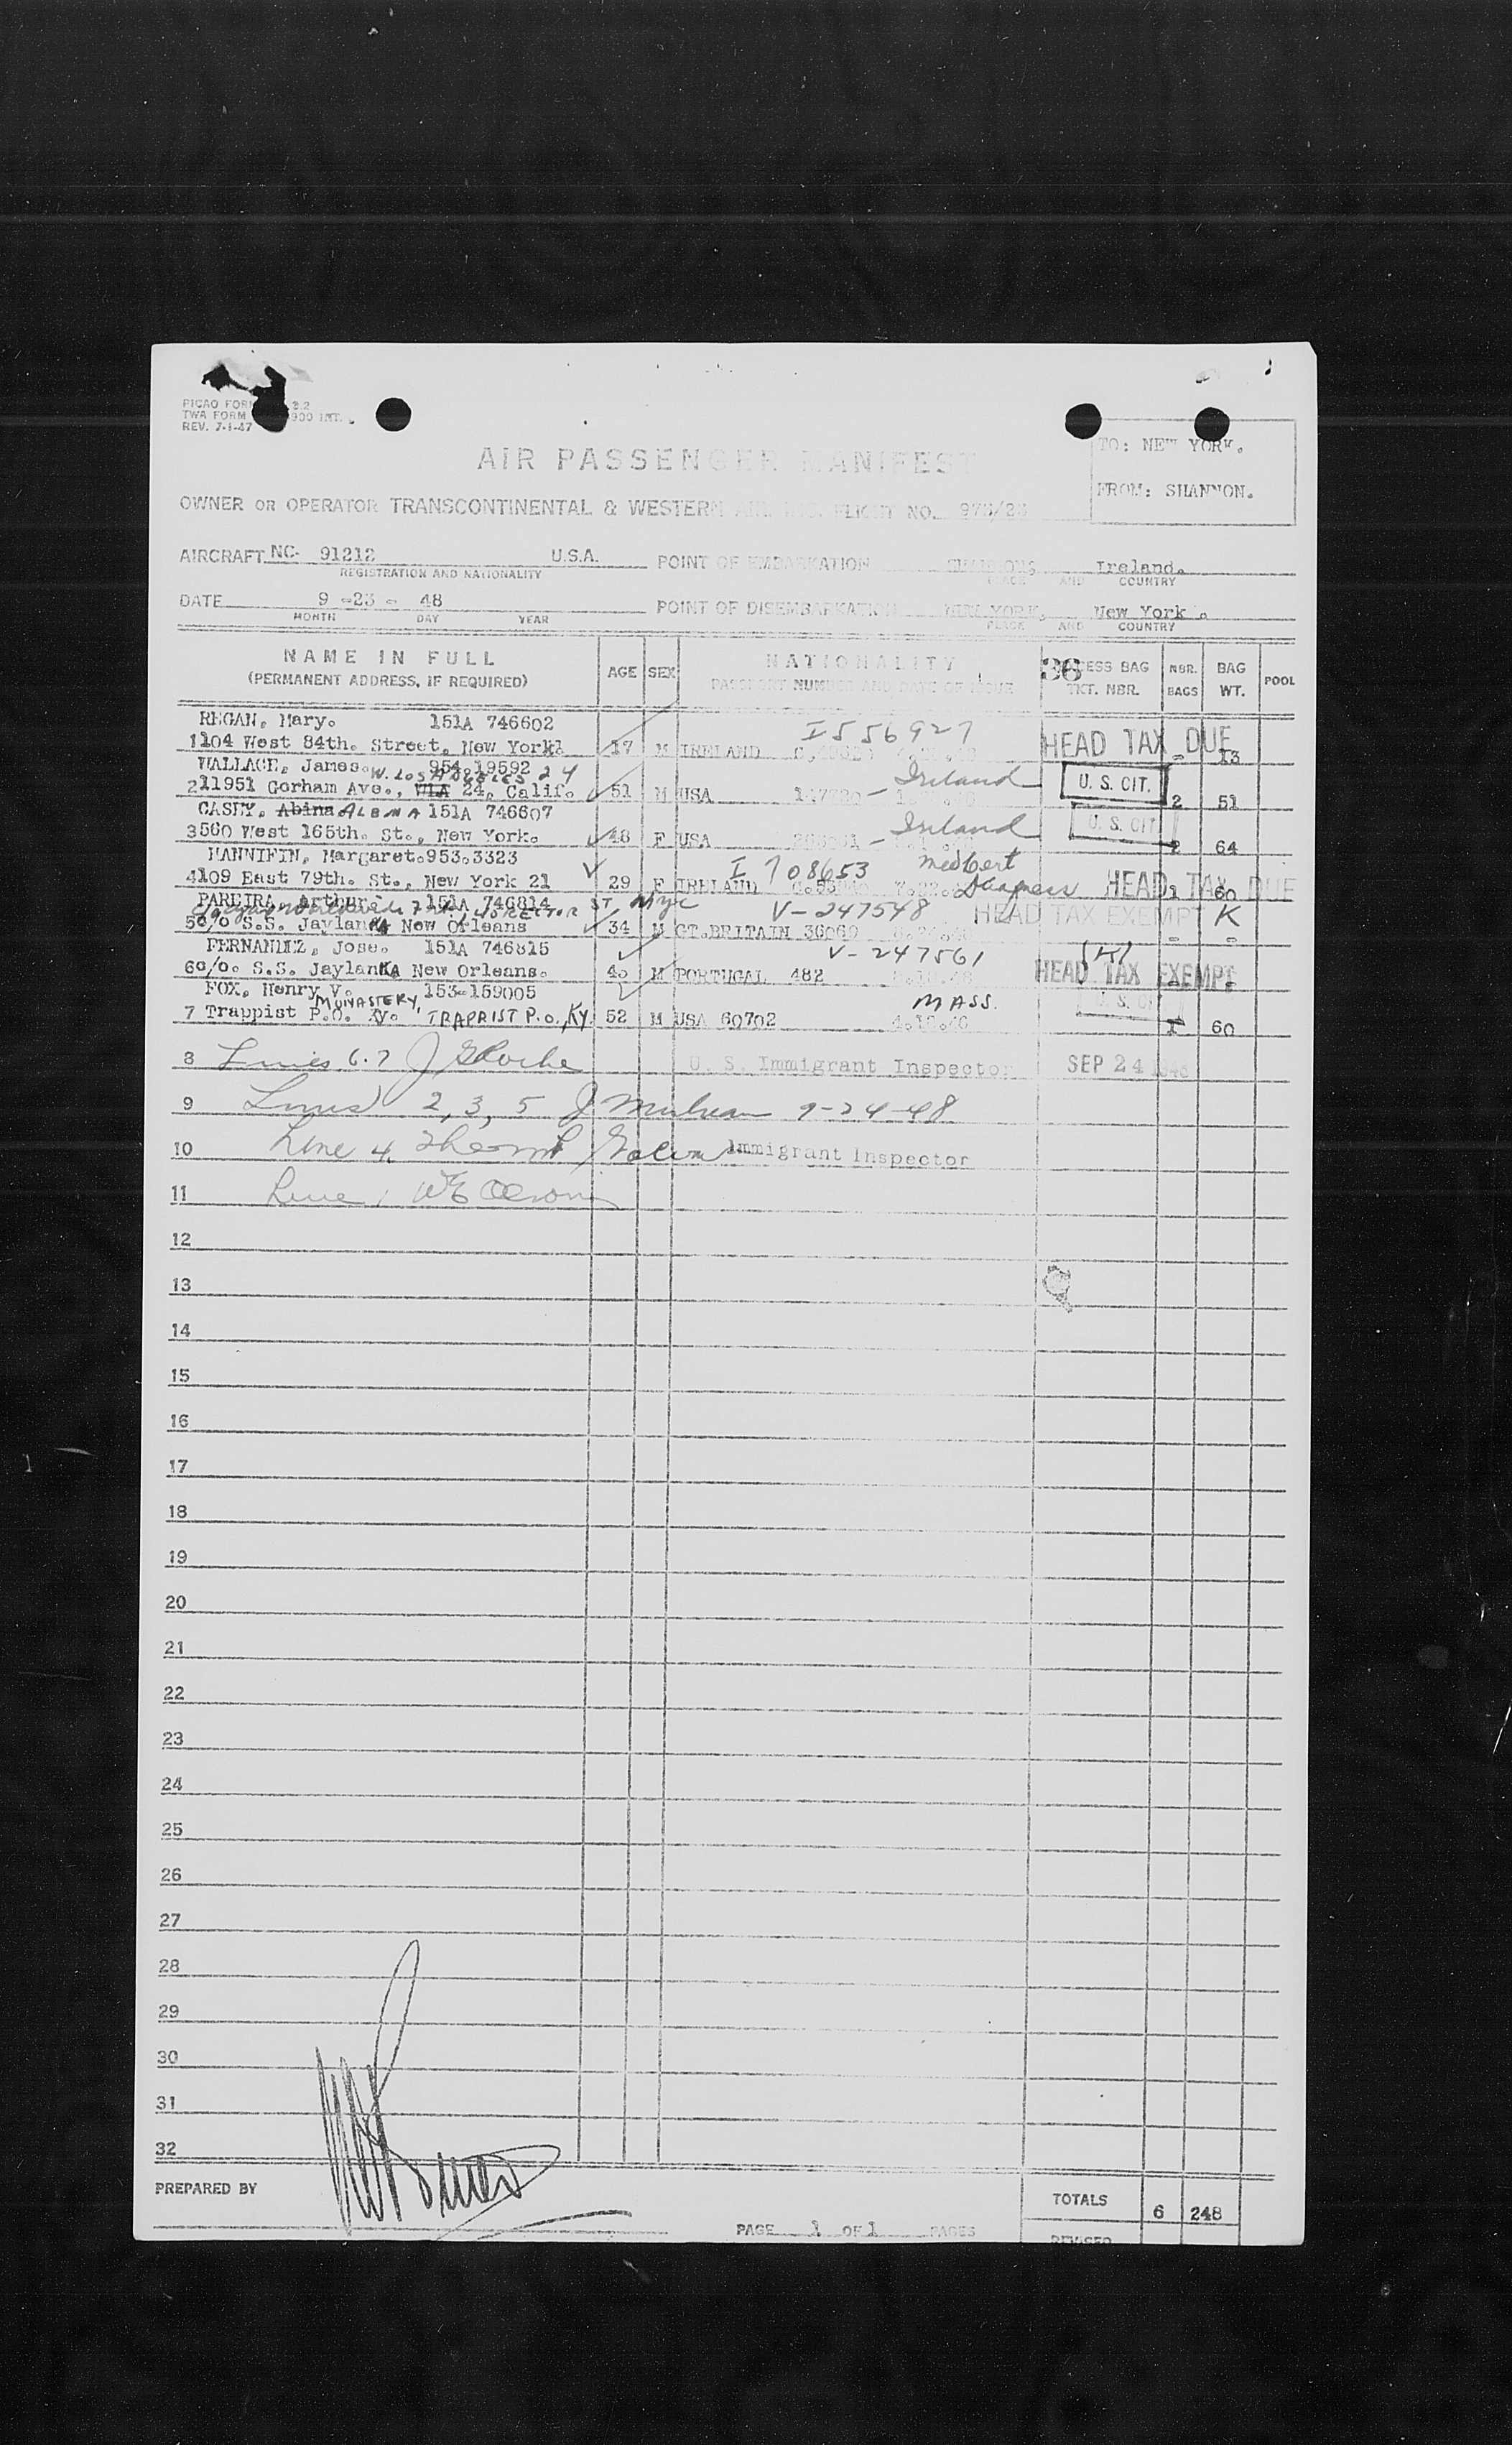 PICAO FORM
TWA FORM 900 INT.
REV. 7-1-47
TO: NEW YORK.
FROM: SHANNON.
AIR PASSENGER MANIFEST
OWNER OR OPERATOR TRANSCONTINENTAL & WESTERN AIR INC. FLIGHT NO.
AIRCRAFT NC- 91212 U.S.A. POINT OF EMBARKATION Ireland.
REGISTRATION AND NATIONALITY PLACE AND COUNTRY
DATE 9 -23 - 48 POINT OF DISEMBARKATION NEW YORK, New York.
MONTH DAY YEAR PLACE AND COUNTRY
NAME IN FULL
(PERMANENT ADDRESS, IF REQUIRED)
AGE SEX NATIONALITY
PASSPORT NUMBER AND DATE OF ISSUE
36 EXCESS BAG TKT. NBR. NBR. BAGS BAG WT. POOL
REGAN, Mary. 151A 746602 I556927
1 104 West 84th. Street, New York 17 M IRELAND HEAD TAX DUE - 13
WALLACE, James. 954-19592 W. LOS ANGELES 24 Ireland
2 11951 Gorham Ave., WLA 24, Calif. 51 M USA U. S. CIT. 2 51
CASEY, Abina ALBINA 151A 746607 Ireland
3 560 West 165th. St., New York. 48 F USA U. S. CIT 2 64
HANNIFIN, Margaret. 953.3323 I 708653 med Cert
4 109 East 79th. St., New York 21 29 F IRELAND HEAD TAX DUE 1 60
PAREIRA, Arthur. 151A 746814 45 RECTOR ST NYC V-247548 HEAD TAX EXEMPT K
5 c/o S.S. JaylanKA New Orleans 34 M GT.BRITAIN 36060 - -
FERNANDEZ, Jose. 151A 746815 V-247561 (K)
6 c/o. S.S. JaylanKA New Orleans. 45 M PORTUGAL 482 HEAD TAX EXEMPT
FOX, Henry V. 153-159005 MONASTERY MASS. U. S. CIT
7 Trappist P.O. Ky. TRAPPIST P.O., KY. 52 M USA 60702 1 60
8 Lines 6.7 J Roche U. S. Immigrant Inspector SEP 24 1948
9 Lines 2, 3, 5 J 9-24-48
10 Line 4. Immigrant Inspector
11 Line 1
12
13
14
15
16
17
18
19
20
21
22
23
24
25
26
27
28
29
30
31
32
PREPARED BY
TOTALS 6 248
PAGE 1 OF 1 PAGES
REVISED